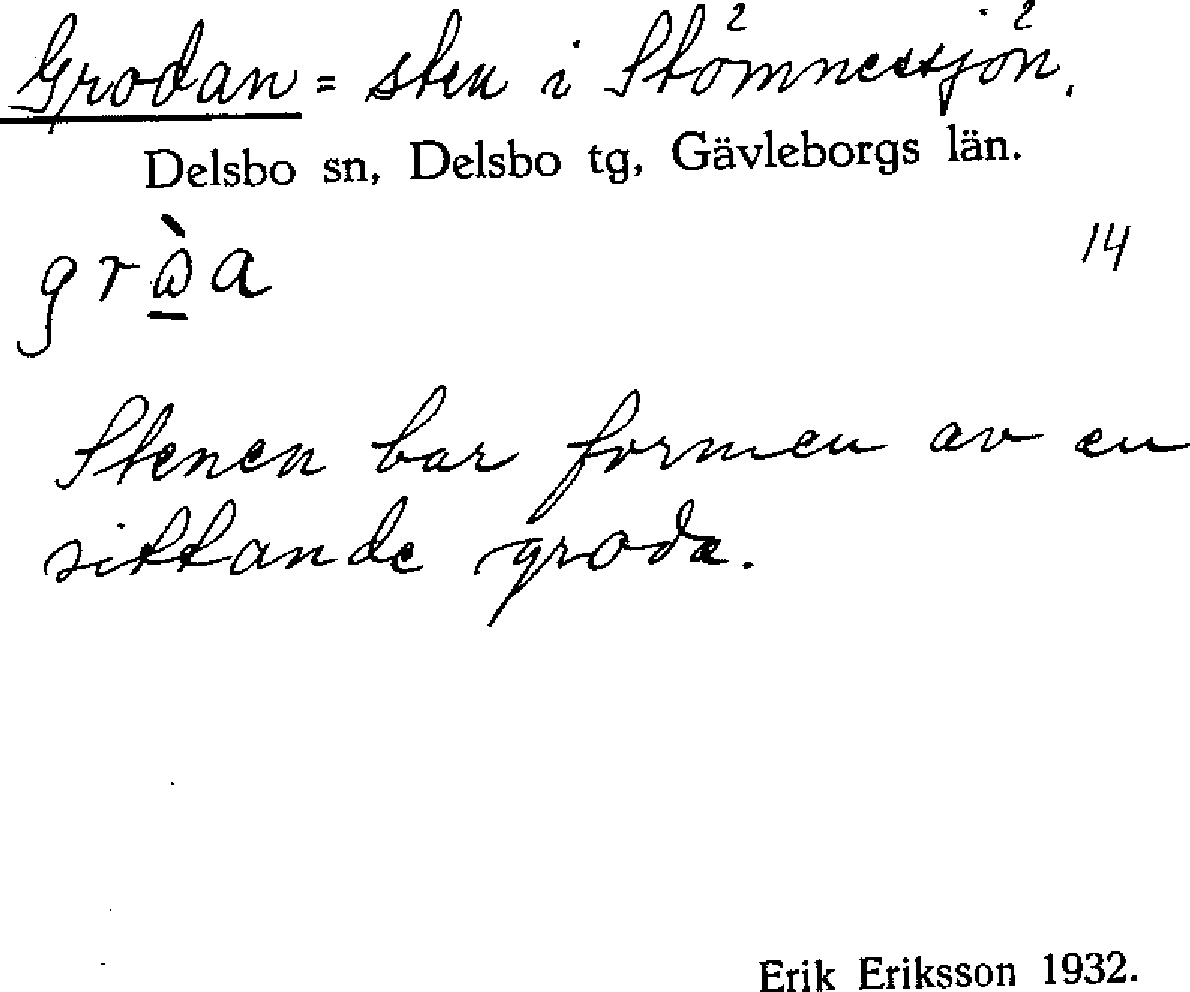 Grodan = sten i Stömnessjön.
Delsbo sn, Delsbo tg, Gävleborgs län.
14
Stenen har formen av en
sittande groda.
Erik Eriksson 1932.